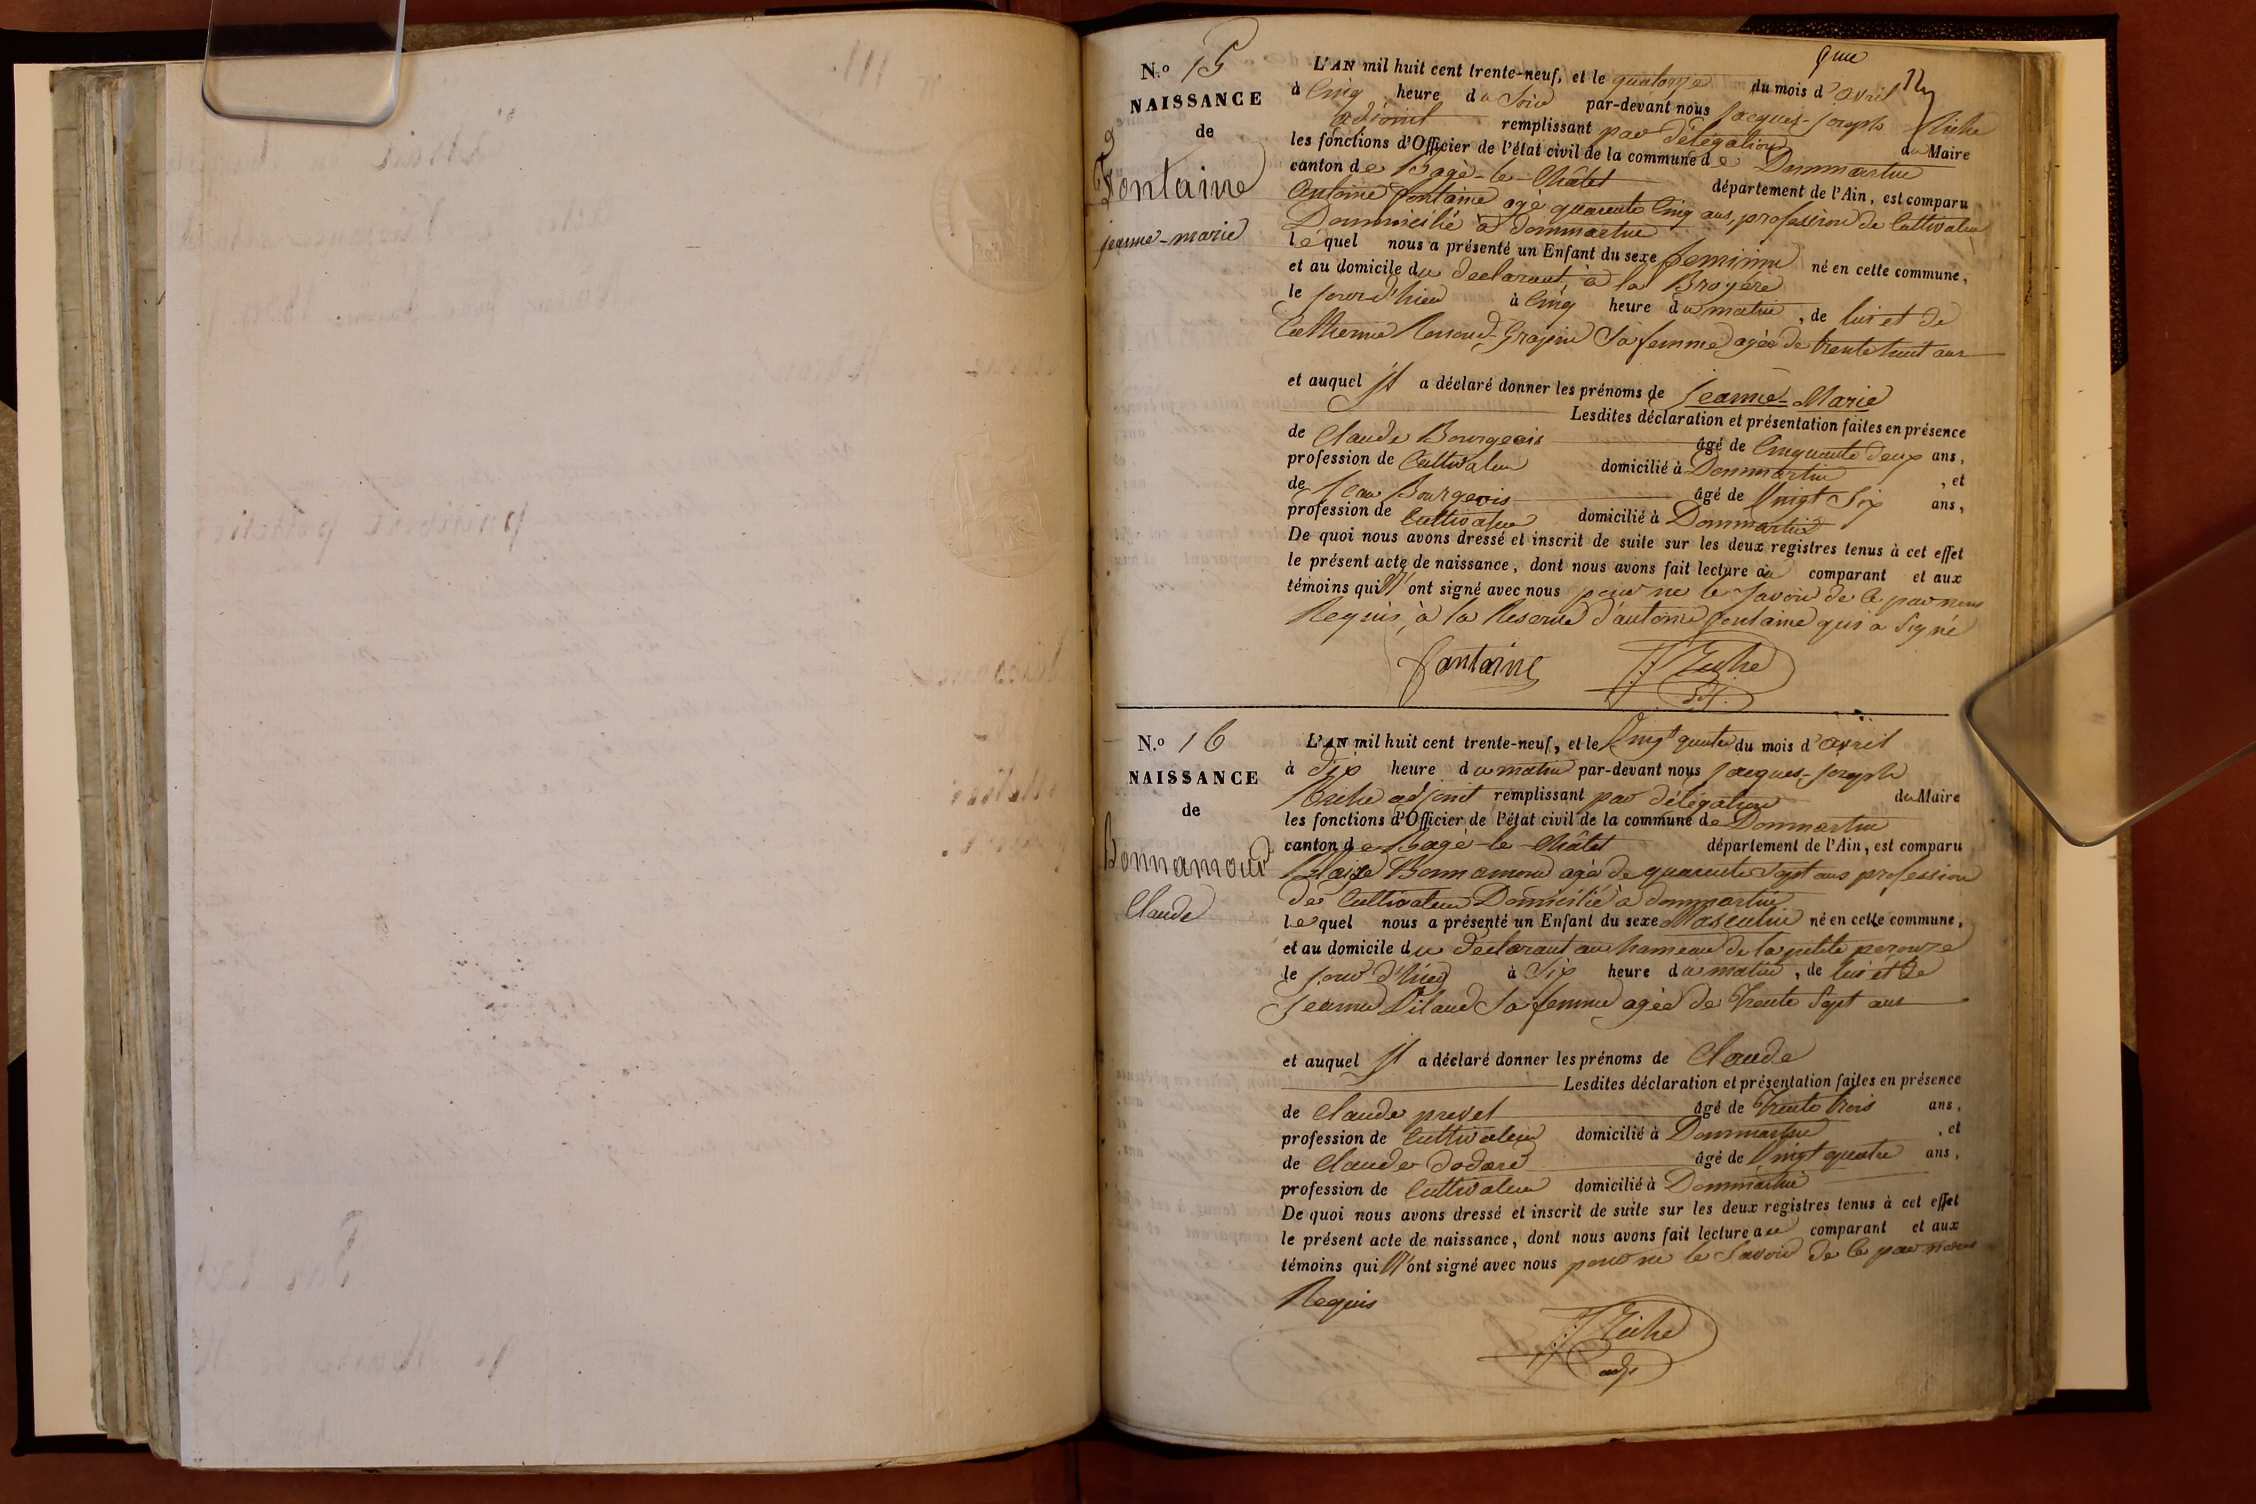 N.o 15
NAISSANCE
de
Fontaine
jeanne-marie
L'AN mil huit cent trente-neuf, et le quatorze du mois d'avril
à Cinq heure du Soir par-devant nous jacques-joseph
adjoint remplissant par délégation du Maire
les fonctions d'Officier de l'état civil de la commune de Dommartin
canton de Bagé-le-Châtel département de l'Ain, est comparu
antoine fontaine agé quarente Cinq ans, profession de Cultivateur
Dommicilié à dommartin
lequel nous a présenté un Enfant du sexe feminin né en cette commune,
et au domicile du declarant, à la Broyère
le jour d'hier à Cinq heure du matin, de lui et de
Catherine Sa femme agée de trente huit ans
et auquel jl a déclaré donner les prénoms de jeanne-Marie
Lesdites déclaration et présentation faites en présence
de Claude Bourgeois âgé de Cinquante deux ans,
profession de Cultivateur domicilié à Dommartin, et
de jean Bourgeois âgé de Vingt Six ans,
profession de Cultivateur domicilié à Dommartin
De quoi nous avons dressé et inscrit de suite sur les deux registres tenus à cet effet
le présent acte de naissance, dont nous avons fait lecture au comparant et aux
témoins qui N'ont signé avec nous pour ne le Savoir de Ce par nous
Requis, à la Reserve d'antoine fontaine qui a Signé
fontaine
N.o 16
NAISSANCE
de
Bonnamour
Claude
L'AN mil huit cent trente-neuf, et le Vingt quatre du mois d'avril
à Dix heure du matin par-devant nous jacques-joseph
adjoint remplissant par délégation du Maire
les fonctions d'Officier de l'état civil de la commune de Dommartin
canton de Bagé-le-Châtel département de l'Ain, est comparu
Blaise Bonnamour agé de quarente Sept ans profession
de Cultivateur Domicilié à dommartin
lequel nous a présenté un Enfant du sexe Masculin né en cette commune,
et au domicile du declarant au hameau de la petite perouze
le jour d'hier à Six heure du matin, de lui et de
jeanne Sa femme agée de Trente Sept ans
et auquel jl a déclaré donner les prénoms de Claude
Lesdites déclaration et présentation faites en présence
de Claude prevel âgé de Trente trois ans,
profession de Cultivateur domicilié à Dommartin, et
de Claude dodaré âgé de Vingt quatre ans,
profession de Cultivateur domicilié à Dommartin
De quoi nous avons dressé et inscrit de suite sur les deux registres tenus à cet effet
le présent acte de naissance, dont nous avons fait lecture au comparant et aux
témoins qui N'ont signé avec nous pour ne le Savoir de Ce par nous
Requis
adj